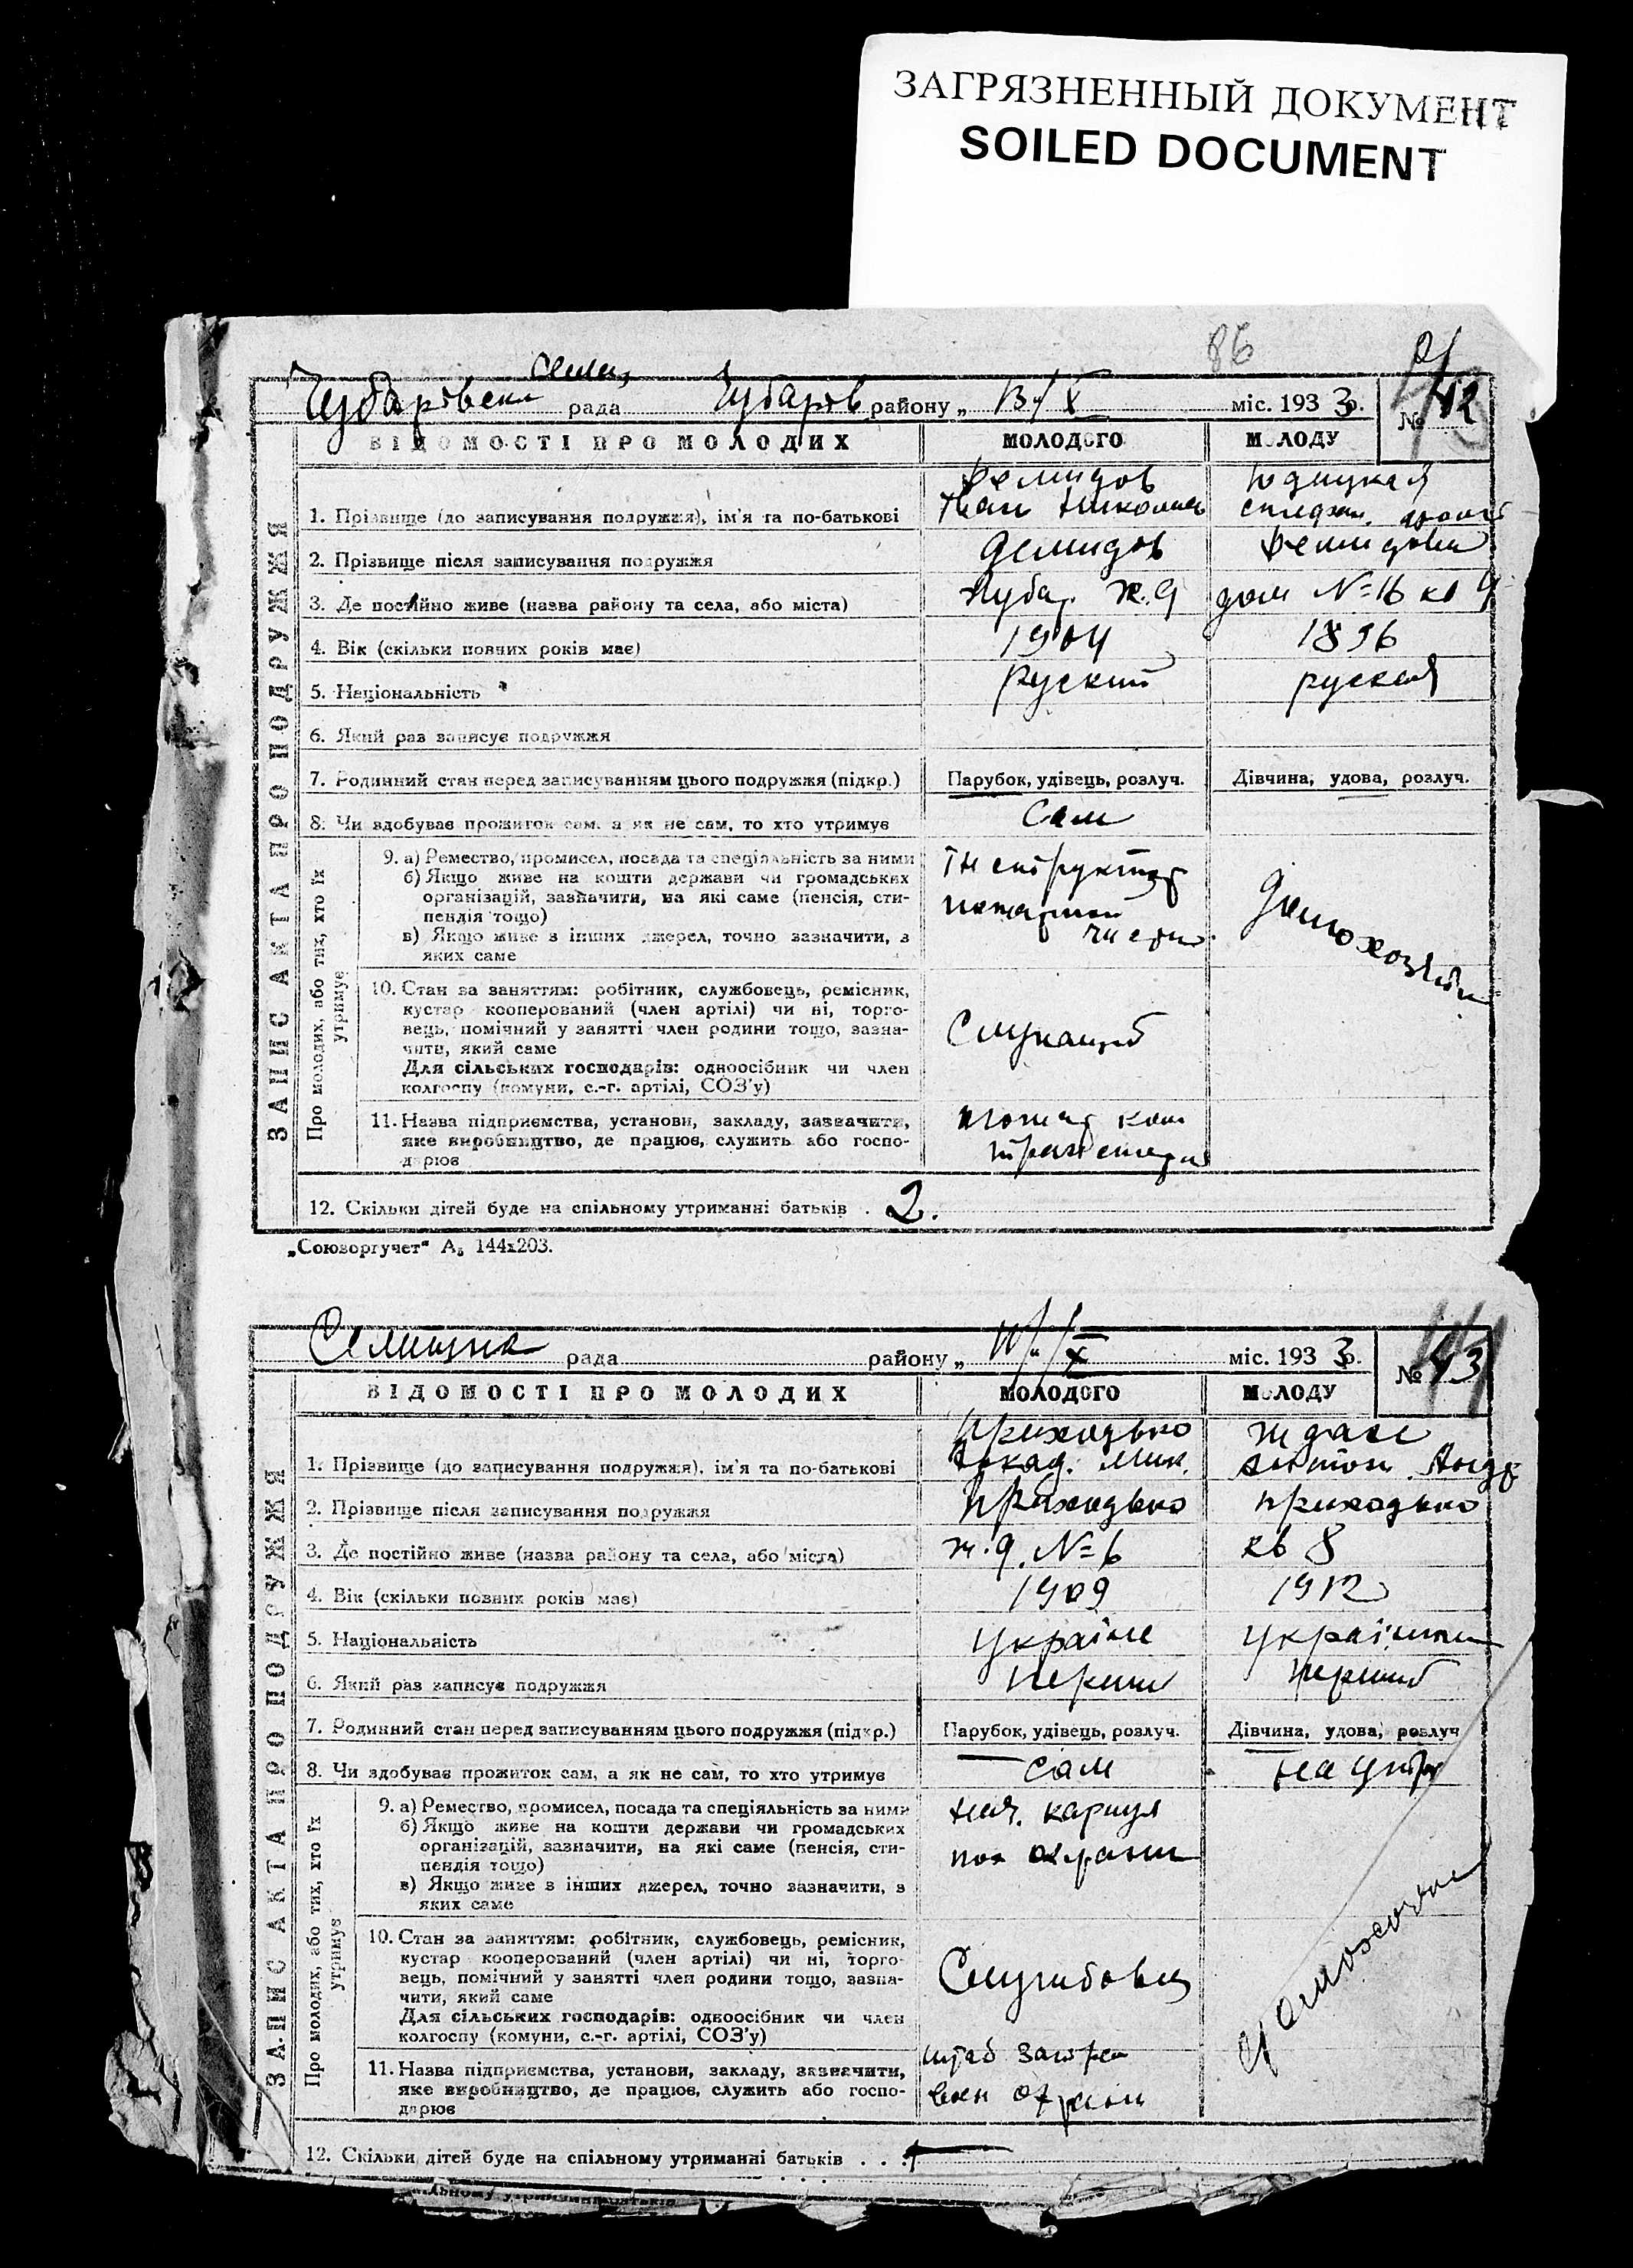 ЗАГРЯЗНЕННЫЙ ДОКУМЕНТ
SOILED DOCUMENT
86
рада Чубаров району „ 13/X міс. 1933 р. № 42
ВІДОМОСТІ ПРО МОЛОДИХ МОЛОДОГО МОЛОДУ
ЗАПИС АКТА ПРО ПОДРУЖЖЯ
Демидов
1. Прізвище (до записування подружжя), ім'я та по-батькові Иван
2. Прізвище після записування подружжя Демидов Демидова
3. Де постійно живе (назва району та села, або міста) дом №16 кв
4. Вік (скільки повних років має) 1904 1896
5. Національність Руский руская
6. Який раз записує подружжя
7. Родинний стан перед записуванням цього подружжя (підкр.) Парубок, удівець, розлуч. Дівчина, удова, розлуч.
8. Чи здобував прожиток сам, а як не сам, то хто утримує Сам
Про молодих, або тих, хто їх утримує
9. а) Ремество, промисел, посада та спеціяльність за ними
б) Якщо живе на кошти держави чи громадських
організацій, зазначити, на які саме (пенсія, сти-
пендія тощо)
в) Якщо живе з інших джерел, точно зазначити, з
яких саме
Инструктор
пожарной
части
10. Стан за заняттям: робітник, службовець, ремісник,
кустар кооперований (член артілі) чи ні, торго-
вець, помічний у занятті член родини тощо, зазна-
чити, який саме
Для сільських господарів: одноосібник чи член
колгоспу (комуни, с.-г. артілі, СОЗ'у)
11. Назва підприємства, установи, закладу, зазначити,
яке виробництво, де працює, служить або госпо-
дарює
12. Скільки дітей буде на спільному утриманні батьків . 2.
„Союзоргучет“ А₅ 144x203.
Селищна рада району „ /X міс. 1933 р. № 43
ВІДОМОСТІ ПРО МОЛОДИХ МОЛОДОГО МОЛОДУ
ЗАПИС АКТА ПРО ПОДРУЖЖЯ
Приходько Ждан
1. Прізвище (до записування подружжя), ім'я та по-батькові Аркад. Мик.
2. Прізвище після записування подружжя Приходько Приходько
3. Де постійно живе (назва району та села, або міста) ж.д. №6 кв 8
4. Вік (скільки повних років має) 1909 1912
5. Національність Україне Українка
6. Який раз записує подружжя Перший Перший
7. Родинний стан перед записуванням цього подружжя (підкр.) Парубок, удівець, розлуч. Дівчина, удова, розлуч
8. Чи здобував прожиток сам, а як не сам, то хто утримує сам на утр
Про молодих, або тих, хто їх утримує
9. а) Ремество, промисел, посада та спеціяльність за ними
б) Якщо живе на кошти держави чи громадських
організацій, зазначити, на які саме (пенсія, сти-
пендія тощо)
в) Якщо живе з інших джерел, точно зазначити, з
яких саме
нач. караул
охрани
10. Стан за заняттям: робітник, службовець, ремісник,
кустар кооперований (член артілі) чи ні, торго-
вець, помічний у занятті член родини тощо, зазна-
чити, який саме
Для сільських господарів: одноосібник чи член
колгоспу (комуни, с.-г. артілі, СОЗ'у)
Службовец
11. Назва підприємства, установи, закладу, зазначити,
яке виробництво, де працює, служить або госпо-
дарює
штаб
12. Скільки дітей буде на спільному утриманні батьків . . .